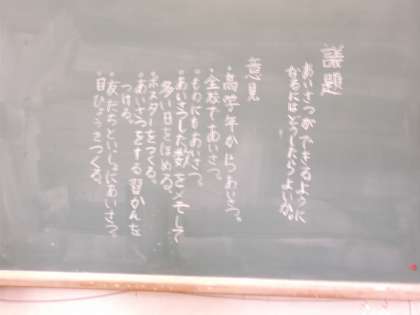 議題
あいさつができるように
なるにはどうしたらよいか。
意見
・高学年からあいさつ。
・全校であいさつ。
・ものにもあいさつ。
・あいさつした数をメモして
多い日をほめる。
・ポスターをつくる。
・あいさつをする習かんを
つける。
・友だちといっしょにあいさつ。
・目ひょうをつくる。